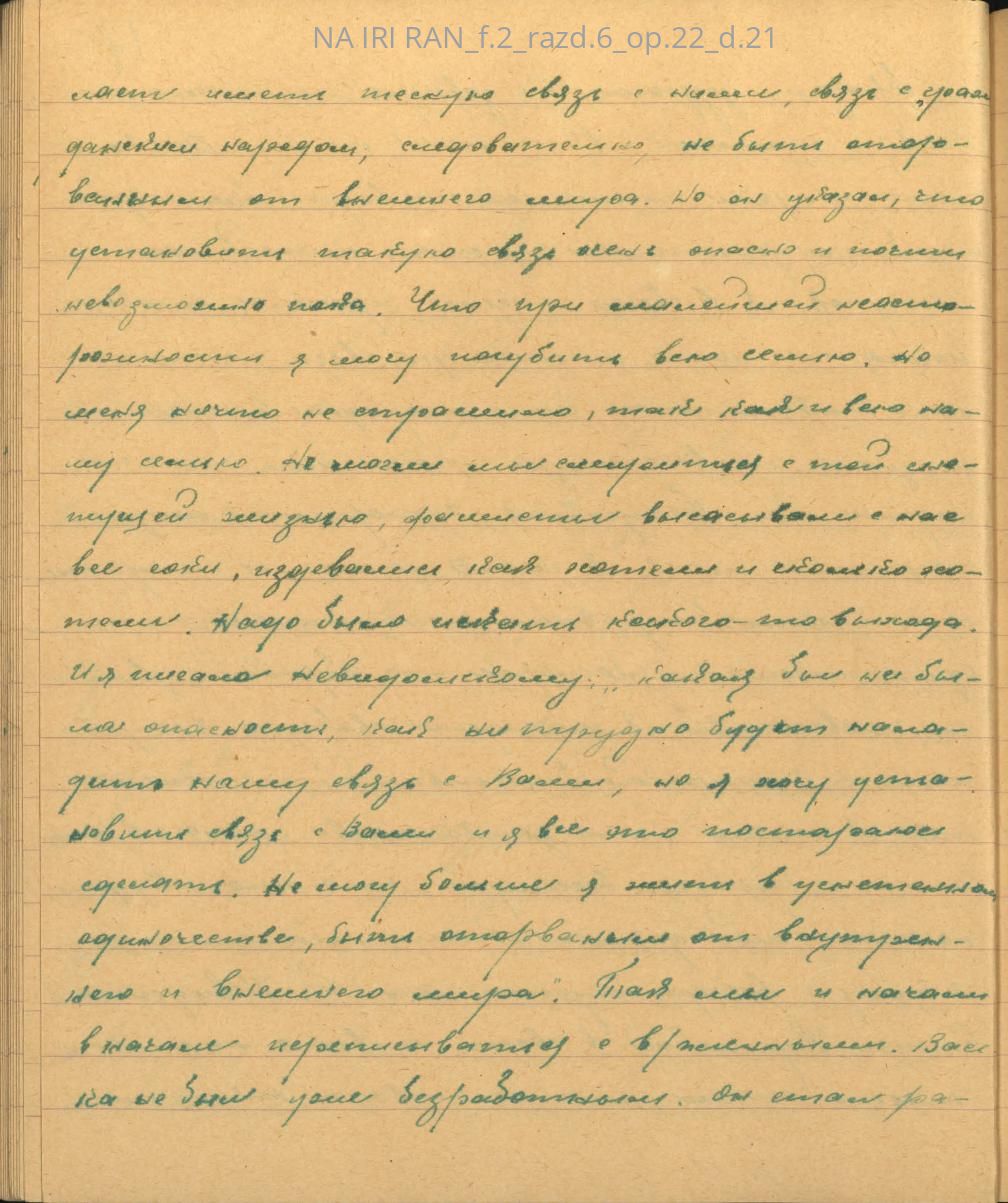 NA IRI RAN_f.2_razd.6_op.22_d.21
лает иметь тескую связь с нами, связь с „граж
данским народом, следовательно, не быть оторо-
ванным от внешнего мира. Но он указал, что
установить такую связь очень опасно и почти
невозможно пока. Что при малейшей неосто-
рожности я могу погубить всю семью. Но
меня ничто не страшило, так как и всю на-
шу семью. Не могли мы смириться с той
жизнью, фашисты высасывали с нас
все соки, издевались, как хотели и сколько хо-
тели. Надо было искать какого-то выхода.
И я писала Невидомскому: „какая бы не бы-
ла опасность, как ни трудно будет нала-
дить нашу связь с Вами, но я хочу уста-
новить связь с Вами и я все это постараюсь
сделать. Не могу больше я жить в
одиночестве, быть оторванным от внутрен-
него и внешнего мира". Так мы и начали
вначале переписываться с в/пленными. Вась
ка не был уже безработным. Он стал ра-